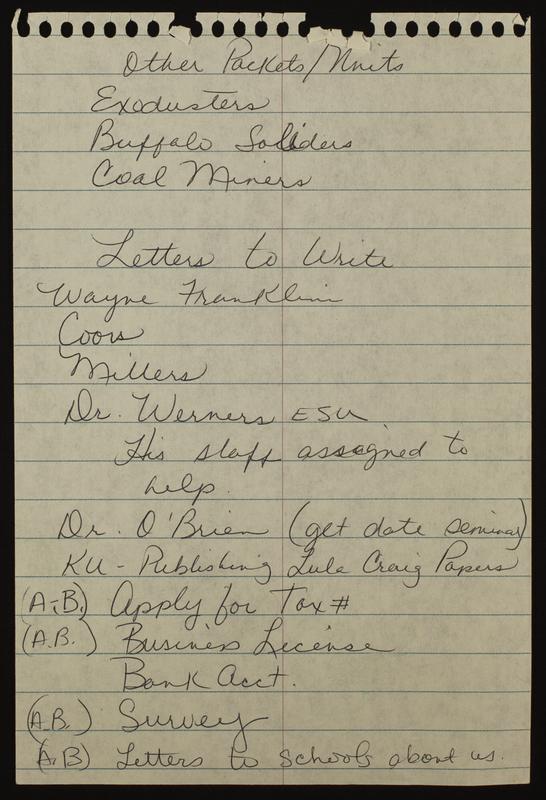 Other Packets/Units
Exodusters
Buffalo Soliders
Coal Miners
Letters to Write
Wayne Franklin
Coors
Millers
Dr. Werners ESU
His staff assagned to
help.
Dr. O'Brien (get date seminar)
KU - Publishing Lula Craig Papers
(A.B.) Apply for Tax #
(A.B.) Business License
Bank Acct.
(A.B.) Survey
(A.B) Letters to schools about us.